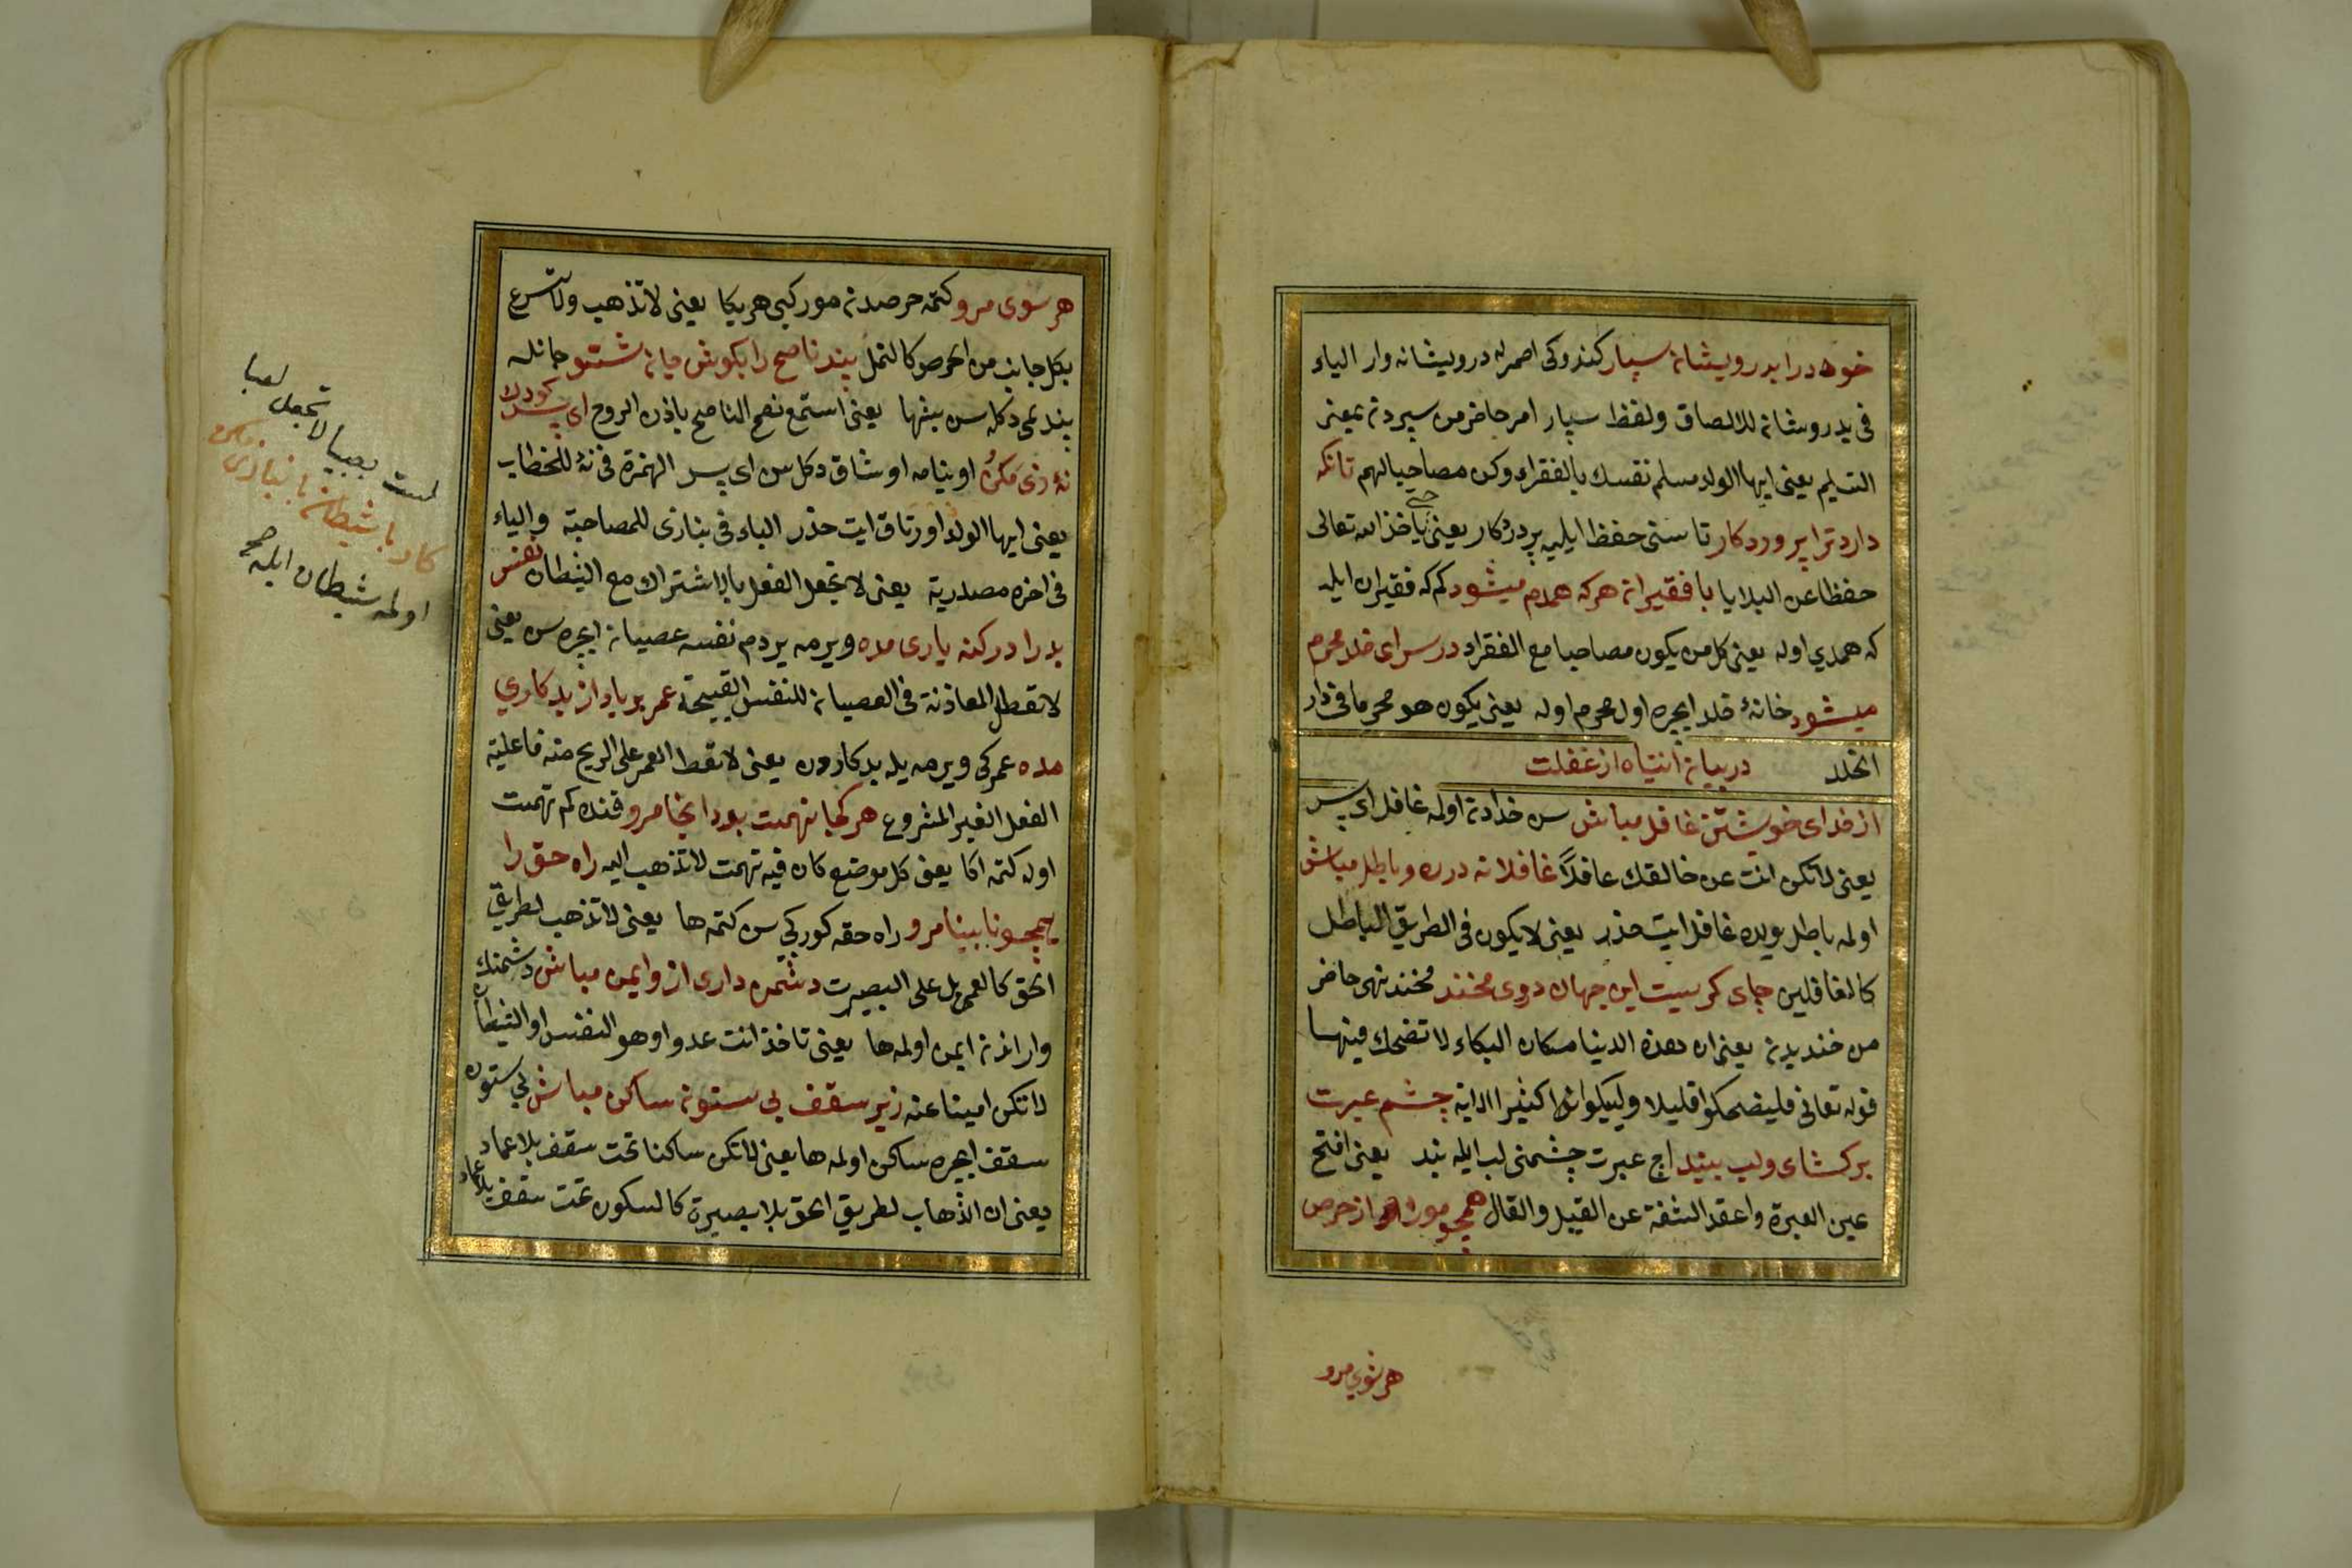 خود را بدرویشان سپار کندوکی اصمرله درویشانه وار الیاء
فی بدرویشان للالصاق ولفظ سپار امر حاضر من سپردن بمعنی
التسلیم یعنی ایها الولد مسلم نفسك بالفقراء وکن مصاحبا لهم تانکه
دارد ترا پروردکار تا سنی حفظ ایلیه پروردکار یعنی حتی یاخذ الله تعالی
حفظا عن البلایا با فقیران هرکه همدم میشود کم که فقیران ایله
که همدم اوله یعنی کل من یکون مصاحبا مع الفقراء در سرای خلد محرم
میشود خانهٔ خلد ایچره اول محرم اوله یعنی یکون هو محرما فی دار
الخلد در بیان انتباه از غفلت
از خدای خویشتن غافل مباش سن خدادن اولمه غافل ای پسر
یعنی لا تکن انت عن خالقك غافلاً غافلانه در ره باطل مباش
اولمه باطل یولده غافل ایت حذر یعنی لا یکون فی الطریق الباطل
کالغافلین جای کریست این جهان دروی مخند مخند نهی حاضر
من خندیدن یعنی ان هذه الدنیا مکان البکاء لا تضحك فیها
قوله تعالی فلیضحکوا قلیلا ولیبکوا کثیرا الایة چشم عبرت
برکشای ولب ببند اچ عبرت چشمنی لب ایله بند یعنی افتح
عین العبرة واعقد الشفة عن القیل والقال همچو مور از حرص
هر سوی مرو
هر سوی مرو کتمه حرصدن مور کبی هر یکا یعنی لا تذهب ولا تسرع
بکل جانب من الحرص کالنمل پند ناصح را بکوش جان شنو جانله
پند دکله سن یعنی استمع نصح الناصح باذن الروح ای پسر کودك
نهٔ بازی مکن اوینامه اوشاق دکلسن ای پسر الهمزة فی نهٔ للخطاب
یعنی ایها الولد اورتاق ایت حذر الباء فی بنازی للمصاحبة والیاء
فی اخره مصدریة یعنی لا تجعل الفعل بالاشتراك مع الشیطان نفس
بد را در کنه یاری مده ویرمه یردم نفسه عصیان ایچره سن یعنی
لا تعط المعاونة فی العصیان للنفس القبیحة عمر بر باد از بدکاری
مده عمرکی ویرمه یله بدکاردن یعنی لا تعط العمر علی الریح منه فاعلیة
الفعل الغیر المشروع هر کجا تهمت بود انجا مرو قنده کم تهمت
اوله کتمه اکا یعنی کل موضع کان فیه تهمت لا تذهب الیه راه حق را
همچو نابینا مرو راه حقه کورکبی سن کتمه ها یعنی لا تذهب لطریق
الحق کالعمی بل علی البصیرت دشمن داری ازو ایمن مباش دشمنك
وار اندن ایمن اولمه ها یعنی تاخذ انت عدوا وهو النفس او الشیطان
لا تکن امینا عنه زیر سقف بی ستون ساکن مباش بی ستون
سقف ایچره ساکن اولمه ها یعنی لا تکن ساکنا تحت سقف بلا عماد
یعنی ان الذهاب لطریق الحق بلا بصیرة کالسکون تحت سقف بلا عماد
لست بصبیا لا تجعل لعبا
کار با شیطان بانبازی مکن
اولمه شیطان ایله